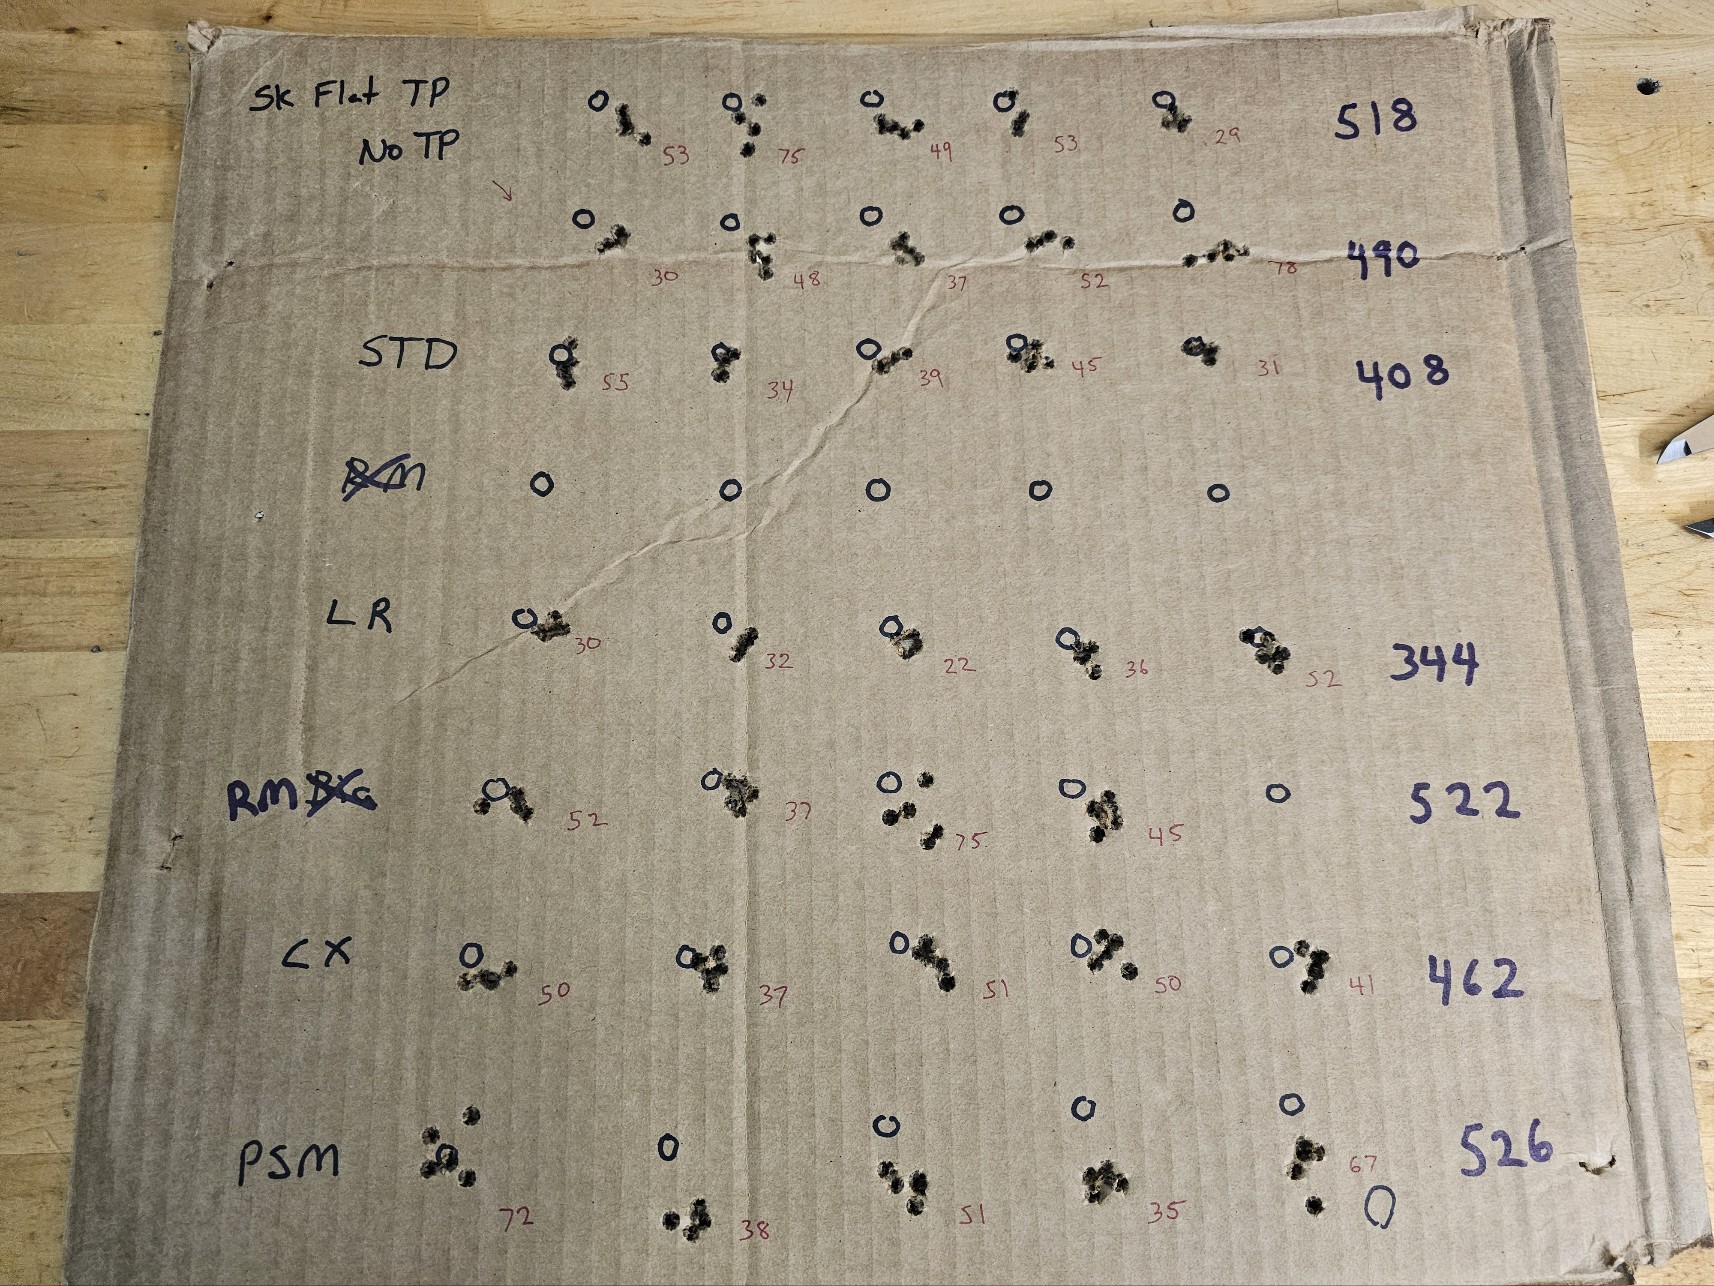 SK Flat TP
53 75 49 53 29 518
No TP
30 48 37 52 78 490
STD 55 34 39 45 31 408
RM
LR 30 32 22 36 52 344
RM 52 37 75 45 522
CX 50 37 51 50 41 462
PSM 72 38 51 35 67 526